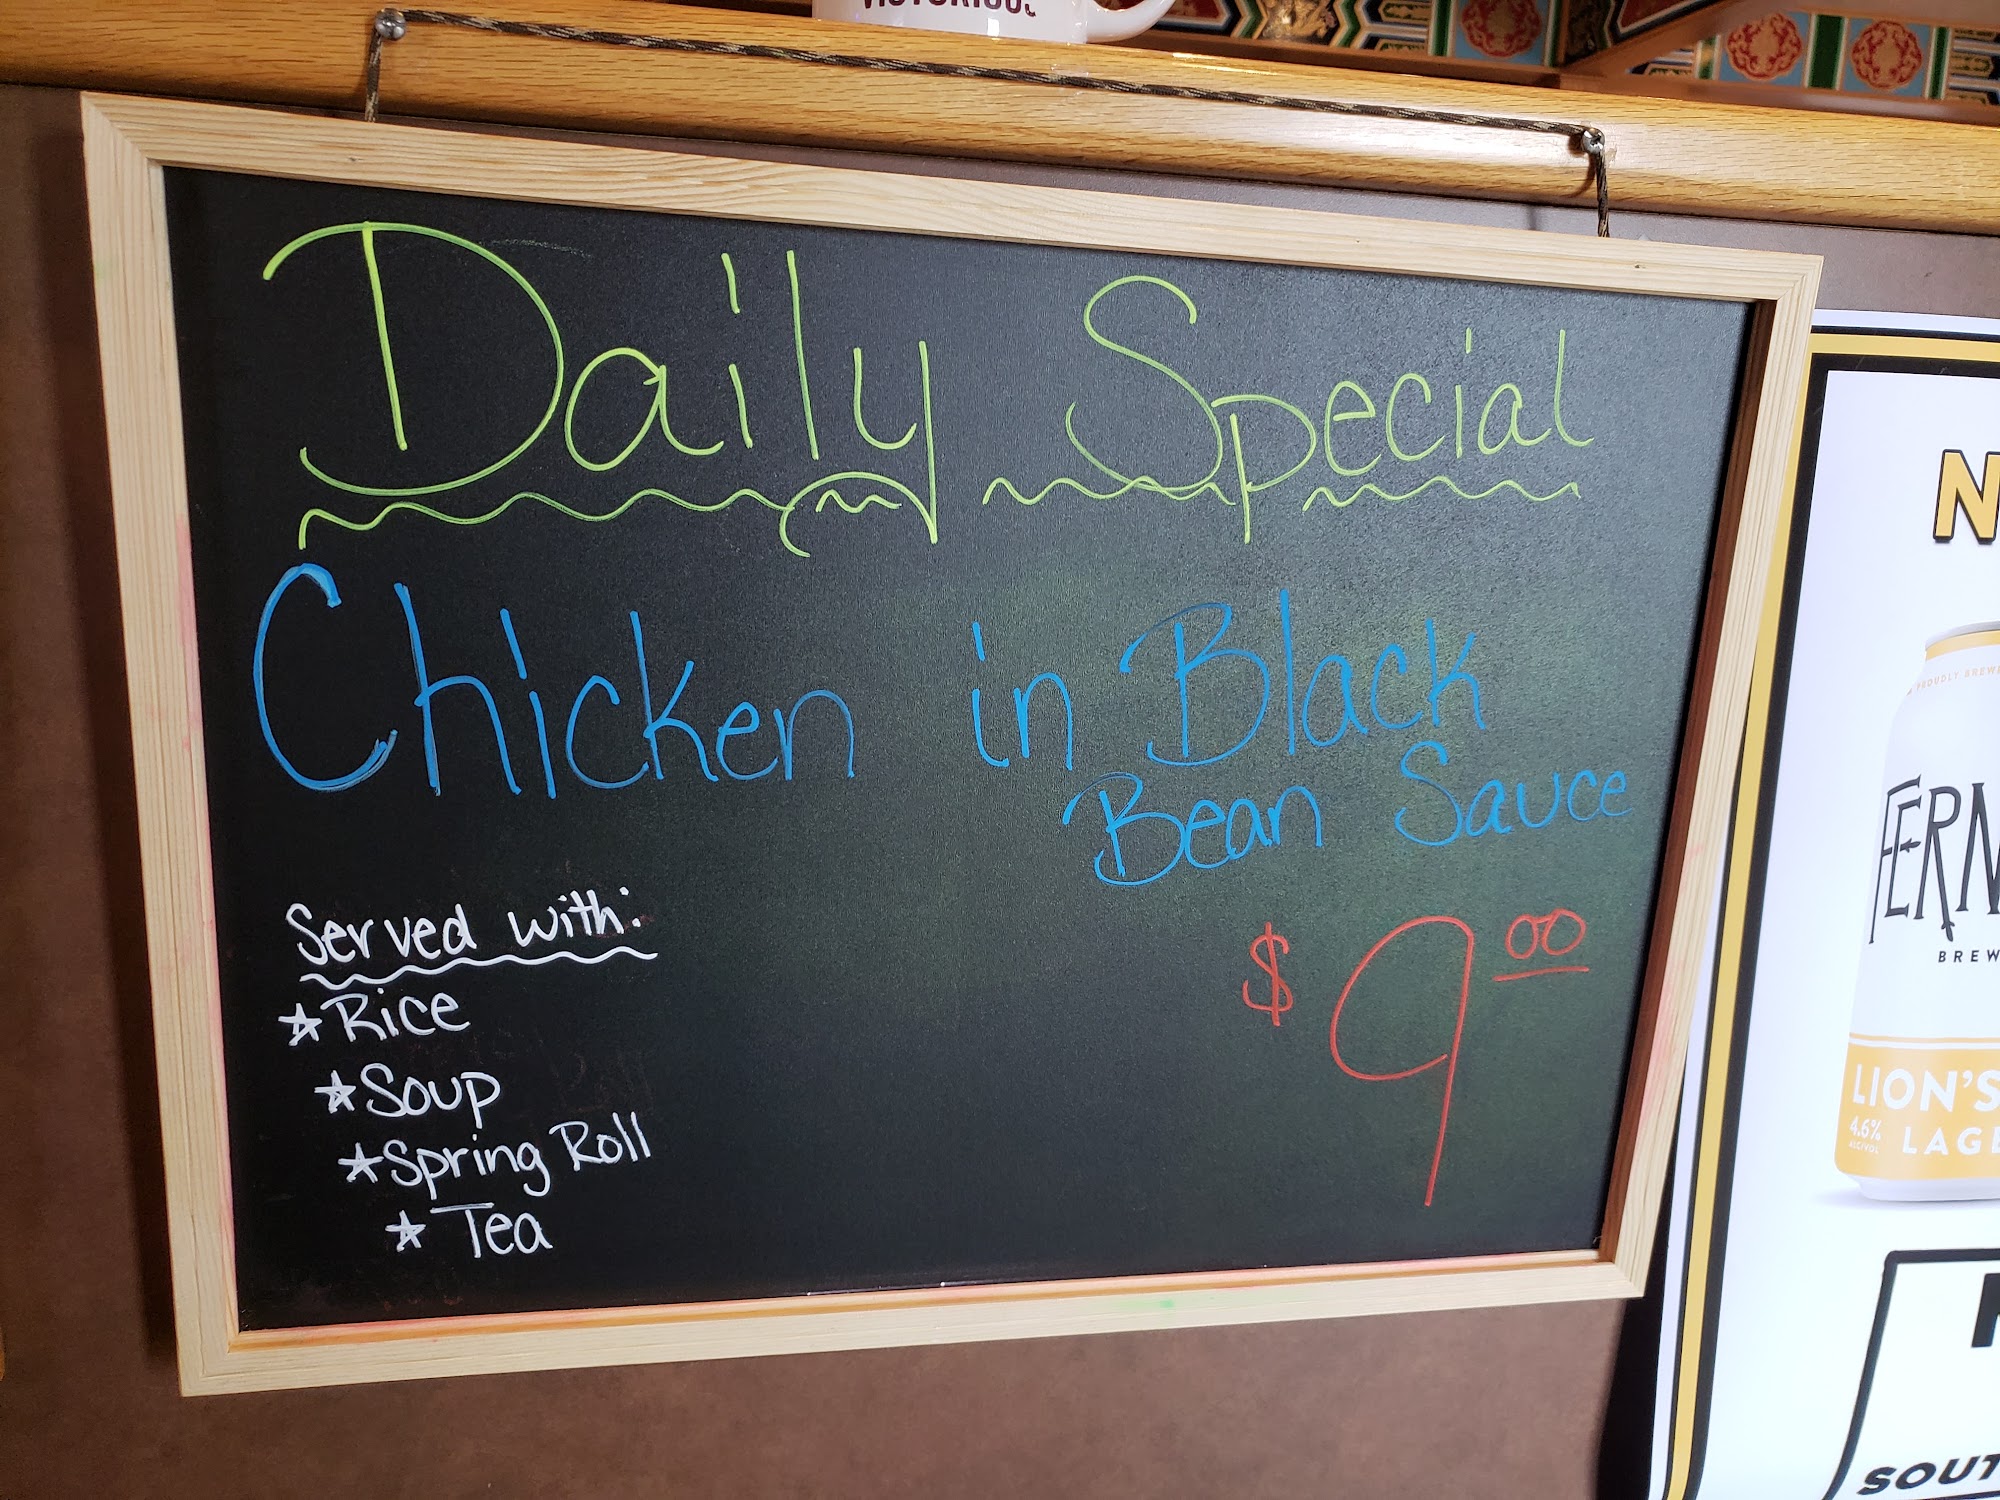 Daily Special
Chicken in Black
Bean Sauce
Served with:
★Rice
★Soup
★Spring Roll
★Tea
$9.00
PROUDLY
BREW
LION'S
4.6%
ALC/VOL
LAGE